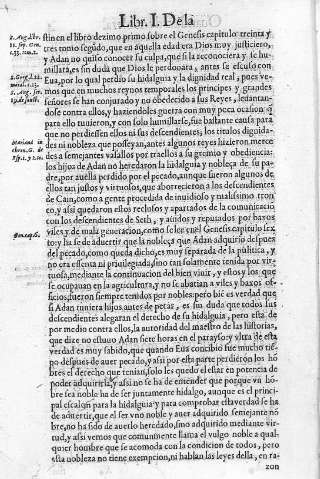 Libr. I. De la
stin en el libro dezimo primo sobre el Genesis capitulo treinta y
tres tomo segũdo, que en aquella edad era Dios muy justiciero,
y Adan no quiso conocer su culpa, que si la reconociera y se hu-
millara, es sin duda que Dios le perdonara, antes se escusó con
Eua, por lo qual perdio su hidalguia y la dignidad real, pues ve-
mos que en muchos reynos temporales los principes y grandes
señores se han conjurado y no obedecido a sus Reyes, leuantan-
dose contra ellos, y haziendoles guerra con muy poca ocasion q̃
para ello tuuieron, y con solo humillarse, fue bastante causa para
que no perdiessen ellos ni sus descendientes, los titulos dignida-
des ni nobleza que posseyan, antes algunos reyes hizieron merce
des a semejantes vasallos por traellos a su gremio y obediencia:
los hijos de Adan no heredaron la hidalguia y nobleça de su pa-
dre, por auella perdido por el pecado, aunque fueron algunos de
ellos tan justos y virtuosos, que aborrecieron a los descendientes
de Cain, como a gente procedida de inuidioso y malissimo tron
co, y assi quedaron estos reclusos y apartados de la comunicaciõ
con los descendientes de Seth, y auidos y reputados por baxos
viles y de mala generacion, como se lee en el Genesis capitulo sex
to: y ha se de aduertir que la nobleça que Adan adquirio despues
del pecado, como queda dicho, es muy separada de la politica, y
no era essenta ni priuilegiada, sino tan solamente tenida por vir-
tuosa, mediante la continuacion del bien viuir, y estos y los que
se ocupauan en la agricultura, y no se abatian a viles y baxos of-
ficios, fueron siempre tenidos por nobles: pero bié es verdad que
si Adan tuuiera hijos antes de pecar, es sin duda que todos sus
descendientes alegaran el derecho de su hidalguia, pero esta de
por medio contra ellos, la autoridad del maestro de las historias,
que dize no estuuo Adan siete horas en el parayso: y vltra de esta
verdad es muy sabido, que quando Eua concibio fue mucho tiẽ-
po despues de auer pecado, y assi por esta parte perdieron los hõ
bres el derecho que tenian, solo les quedo el estar en potencia de
poder adquirirla, y assi no se ha de entender que porque vn hõ-
bre sea noble ha de ser juntamente hidalgo, aunque es el princi-
pal escalon para la hidalguia: y para comprobar esta verdad se ha
de aduertir, que el ser vno noble y auer adquirido semejante nõ
bre, no ha sido de auerlo heredado, sino adquirido mediante vir-
tud, y assi vemos que comunmente llama el vulgo noble a qual-
quier hombre que se acomoda con la condicion de todos, pero
esta nobleza no tiene exempcion, ni hablan las leyes della, en ra-
zon